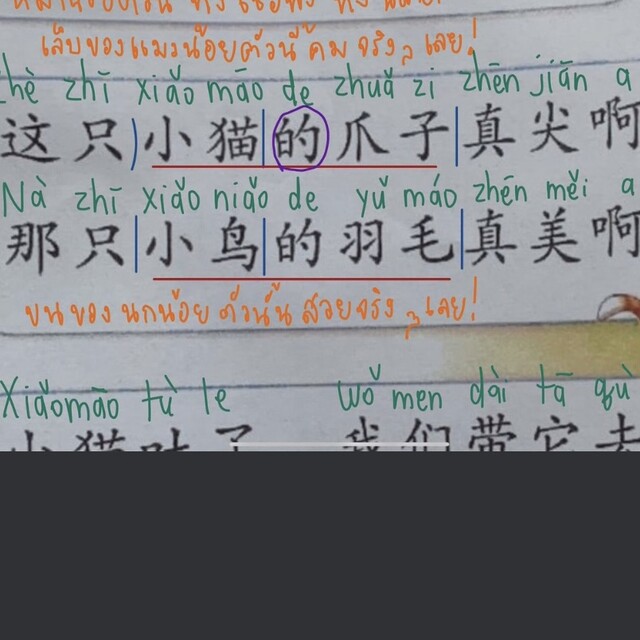 เล็บของแมวน้อยตัวนี้คมจริงๆเลย!
zhī xiǎo māo de zhuǎ zi zhēn jiān a
这只小猫的爪子真尖啊
Nà zhī xiǎo niǎo de yǔ máo zhēn měi a
那只小鸟的羽毛真美啊
ขนของนกน้อยตัวนั้นสวยจริงๆเลย!
Xiǎomāo tù le wǒ men dài tā qù